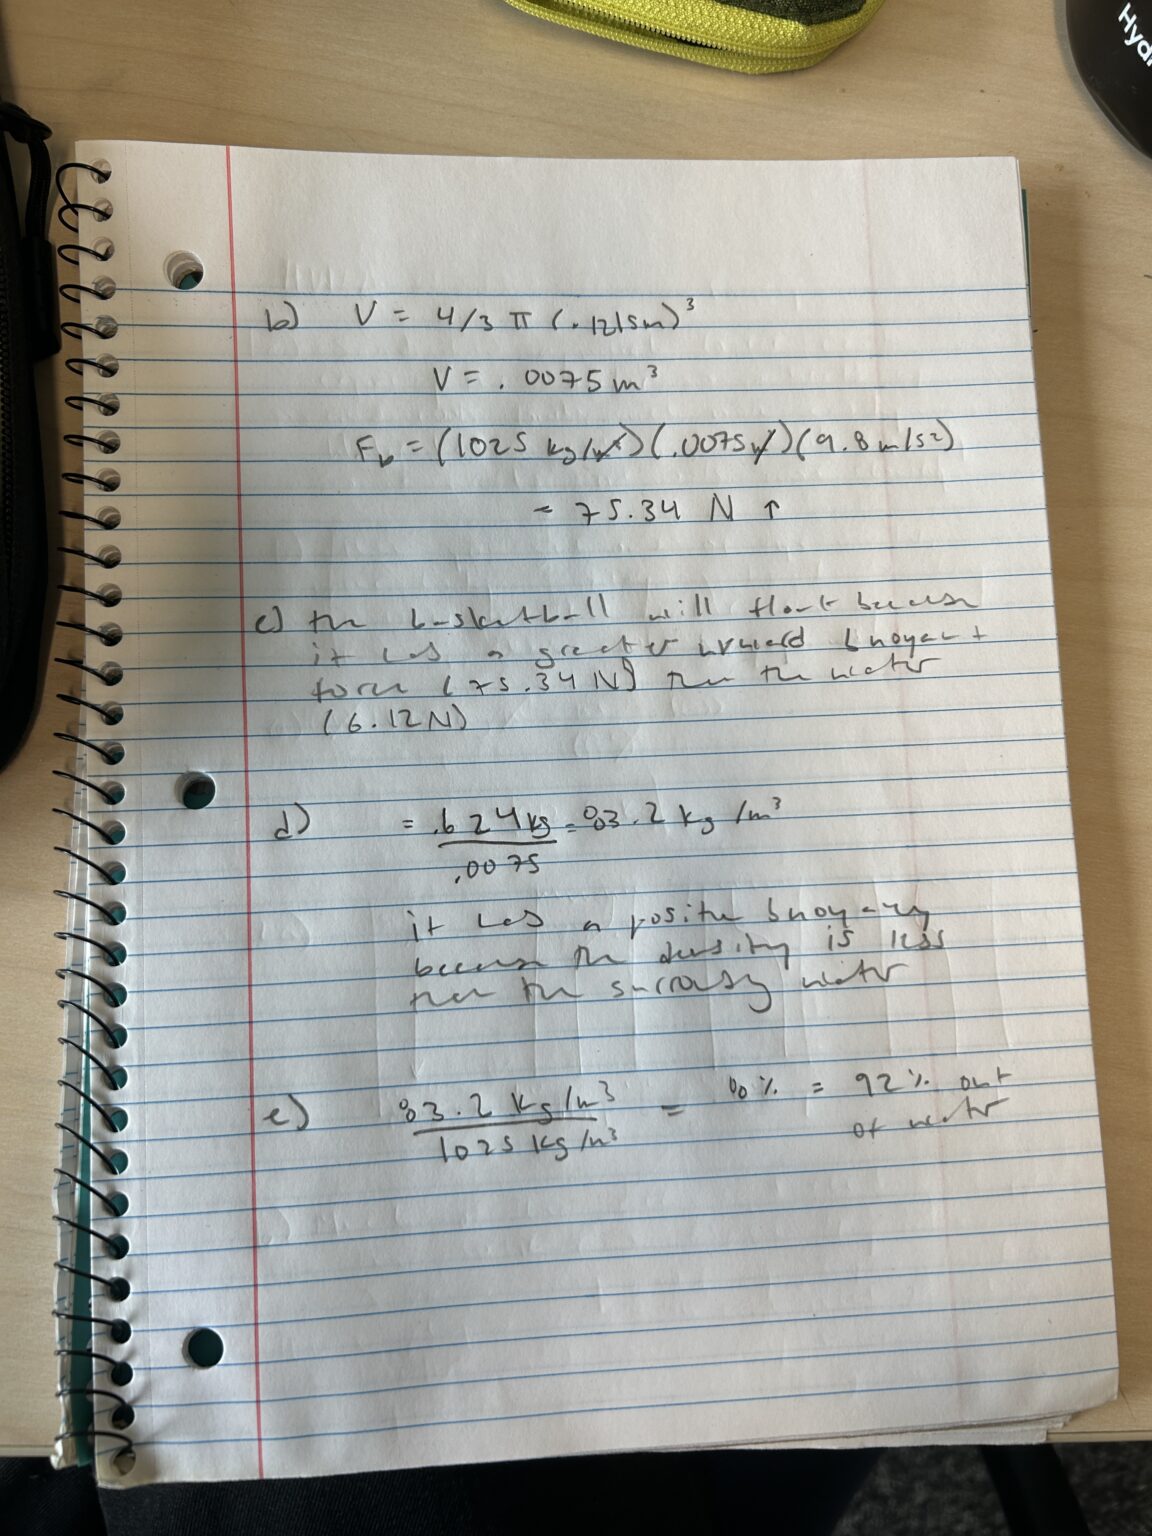 Hyd
b) V = 4/3 π (.1215m)³
V = .0075m³
Fb = (1025 kg/m³)(.0075m³)(9.8m/s²)
= 75.34 N ↑
c) the basketball will float because
it has a greater upward buoyant
force (75.34N) then the water
(6.12N)
d) = .624kg = 83.2 kg/m³
.0075
it has a positive buoyancy
because the density is less
then the surroundg water
e) 83.2 kg/m³ = 8% = 92% out
1025 kg/m³ of water